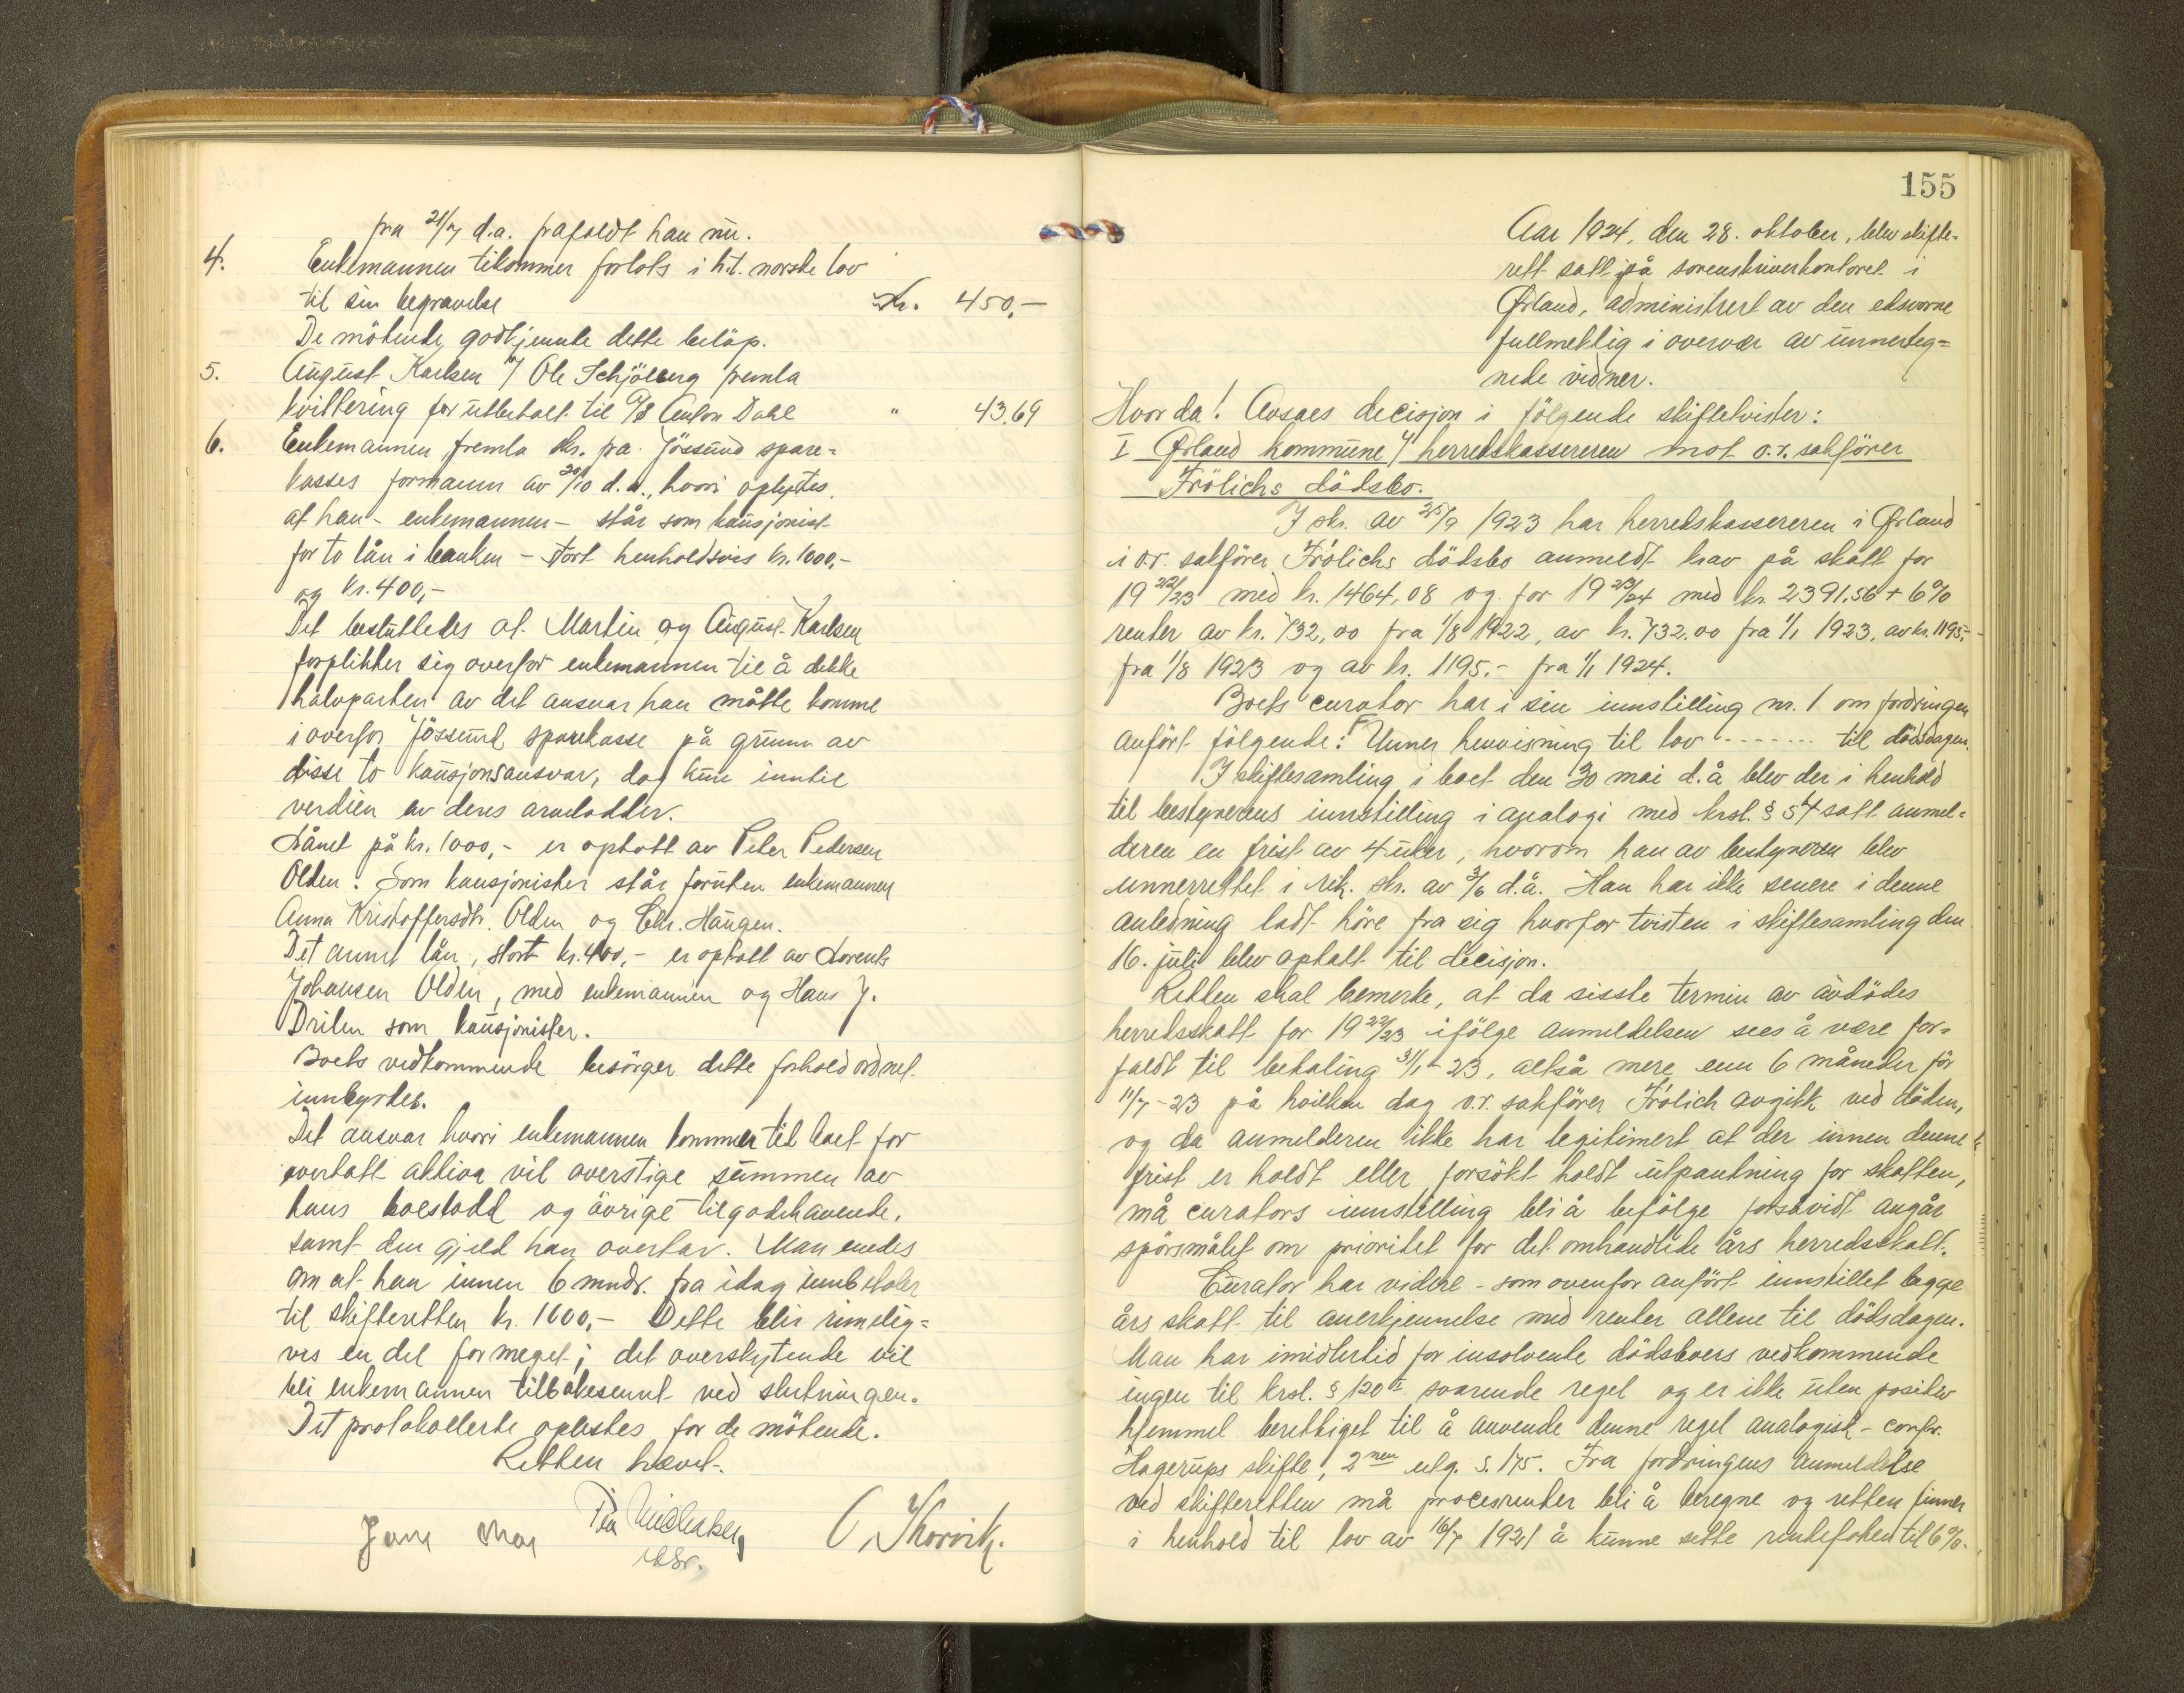 fra 21/7 d.a. frafaldt han nu.
4. Enkemannen tilkommer forlods i h.t. norske lov
til sin begravelse Kr. 450,-
De mötende godkjennte dette belöp.
5. August Karlsen v/ Ole Schjölberg fremla
kvittering for utbetalt til Anton Dahl " 43,69
6. Enkemannen fremla skr. fra Jössund spare=
kasses formann av 20/10 d.a., hvori oplystes,
at han - enkemannen - står som kausjonist
for to lån i banken - stort henholdsvis kr. 1000,-
og kr. 400,-
Det besluttedes at Martin og August Karlsen
forplikter sig overfor enkemannen til å dekke
halvparten av det ansvar han måtte komme
i overfor Jössund sparekasse på grunn av
disse to kausjonsansvar, dog kun inntil
verdien av deres arvelodder.
Lånet på kr. 1000,- er optatt av Peter Pedersen
Olden. Som kausjonister står foruten enkemannen
Anna Kristoffersdtr. Olden og Chr. Haugen.
Det annet lån, stort kr. 400,- er optatt av Lorents
Johansen Olden, med enkemannen og Hans J.
Driten som kausjonister.
Boets vedkommende besörger dette forhold ordnet
innbyrdes.
Det ansvar hvori enkemannen kommer til boet for
overtatt aktiva vil overstige summen av
hans boeslodd og övrige tilgodehavende,
samt den gjeld han overtar. Man enedes
om at han innen 6 mndr. fra idag innbetaler
til skifteretten kr. 1600,- Dette blir rimelig=
vis en del for meget; det overskytende vil
bli enkemannen tilbakesennt ved slutningen.
Det protokollerte oplestes for de mötende.
Retten hævet.
O. Skorvik.
155
Aar 1924, den 28. oktober, blev skifte=
rett satt på sorenskriverkontoret i
Ørland, administrert av den edsvorne
fullmektig i overvær av unnerteg=
nede vidner.
Hvorda! Avsaes decisjon i fölgende skiftetvister:
I Ørland kommune v/ herredskassereren mot o.r. sakförer
Frölichs dödsbo.
I skr. av 25/9 1923 har herredskassereren i Ørland
i o.r. sakförer Frölichs dödsbo anmeldt krav på skatt for
1922/23 med kr. 1464,08 og for 1923/24 med kr. 2391.56 + 6%
renter av kr. 732,00 fra 1/8 1922, av kr. 732.00 fra 1/1 1923, av kr. 1195,-
fra 1/8 1923 og av kr. 1195.- fra 1/1 1924.
Boets curator har i sin innstilling nr. 1 om fordringen
anfört fölgende: "Unner henvisning til lov ------- til dödsdagen.
I skiftesamling i boet den 30 mai d.å blev der i henhold
til bestyrerens innstilling i analogi med krsl. § 54 satt anmel=
deren en frist av 4 uker, hvorom han av bestyreren blev
unnerrettet i rek. skr. av 3/6 d.å. Han har ikke senere i denne
anledning ladt höre fra sig hvorfor tvisten i skiftesamling den
16. juli blev optatt til decisjon.
Retten skal bemerke, at da sisste termin av avdödes
herredsskatt for 1922/23 ifölge anmeldelsen sees å være for=
faldt til betaling 31/1-23, altså mere enn 6 måneder för
11/7-23 på hvilken dag o.r. sakförer Frölich avgikk ved döden,
og da anmelderen ikke har legitimert at der innen denne
frist er holdt eller forsökt holdt utpantning for skatten,
må curators innstilling bli å befölge forsåvidt angår
spörsmålet om prioritet for det omhandlede års herredsskatt.
Curator har videre - som ovenfor anfört innstillet begge
års skatt til anerkjennelse med renter allene til dödsdagen.
Man har imidlertid for insolvente dödsboers vedkommende
ingen til krsl. § 120 I svarende regel og er ikke uten positiv
hjemmel berettiget til å anvende denne regel analogisk - confr.
Hagerups skifte, 2nen utg. s. 175. Fra fordringens anmeldelse
ved skifteretten må procesrenter bli å beregne og retten finner
i henhold til lov av 16/7 1921 å kunne sette rentefoten til 6%.